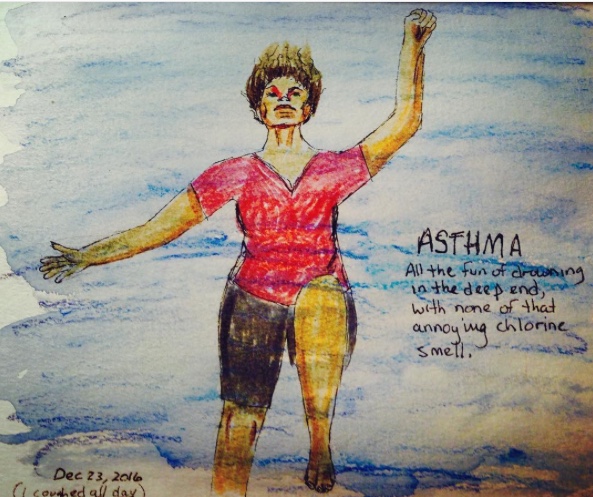 ASTHMA
All the fun of drowning
in the deep end,
with none of that
annoying chlorine
smell.
Dec 23, 2016
(I coughed all day)